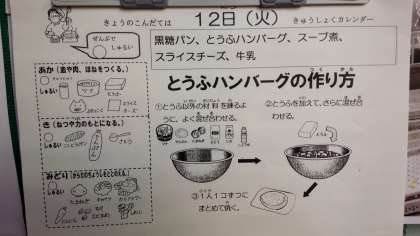 きょうのこんだては
12日(火)
きゅうしょくカレンダー
ぜんぶで
しゅるい
黒糖パン、とうふハンバーグ、スープ煮、
スライスチーズ、牛乳
あか(血や肉、ほねをつくる。)
しゅるい
とうふ
スライス
チーズ
き(ねつや力のもとになる。)
しゅるい
こくとうパン
さとう
みどり(からだのちょうしをととのえる。)
しゅるい
たまねぎ
キャベツ
にんじん
とうふハンバーグの作り方
①とうふ以外の材料を練るよ
うに、よく混ぜ合わせる。
②とうふを加えて、さらに混ぜ合
わせる。
③1人1コずつに
まとめて焼く。